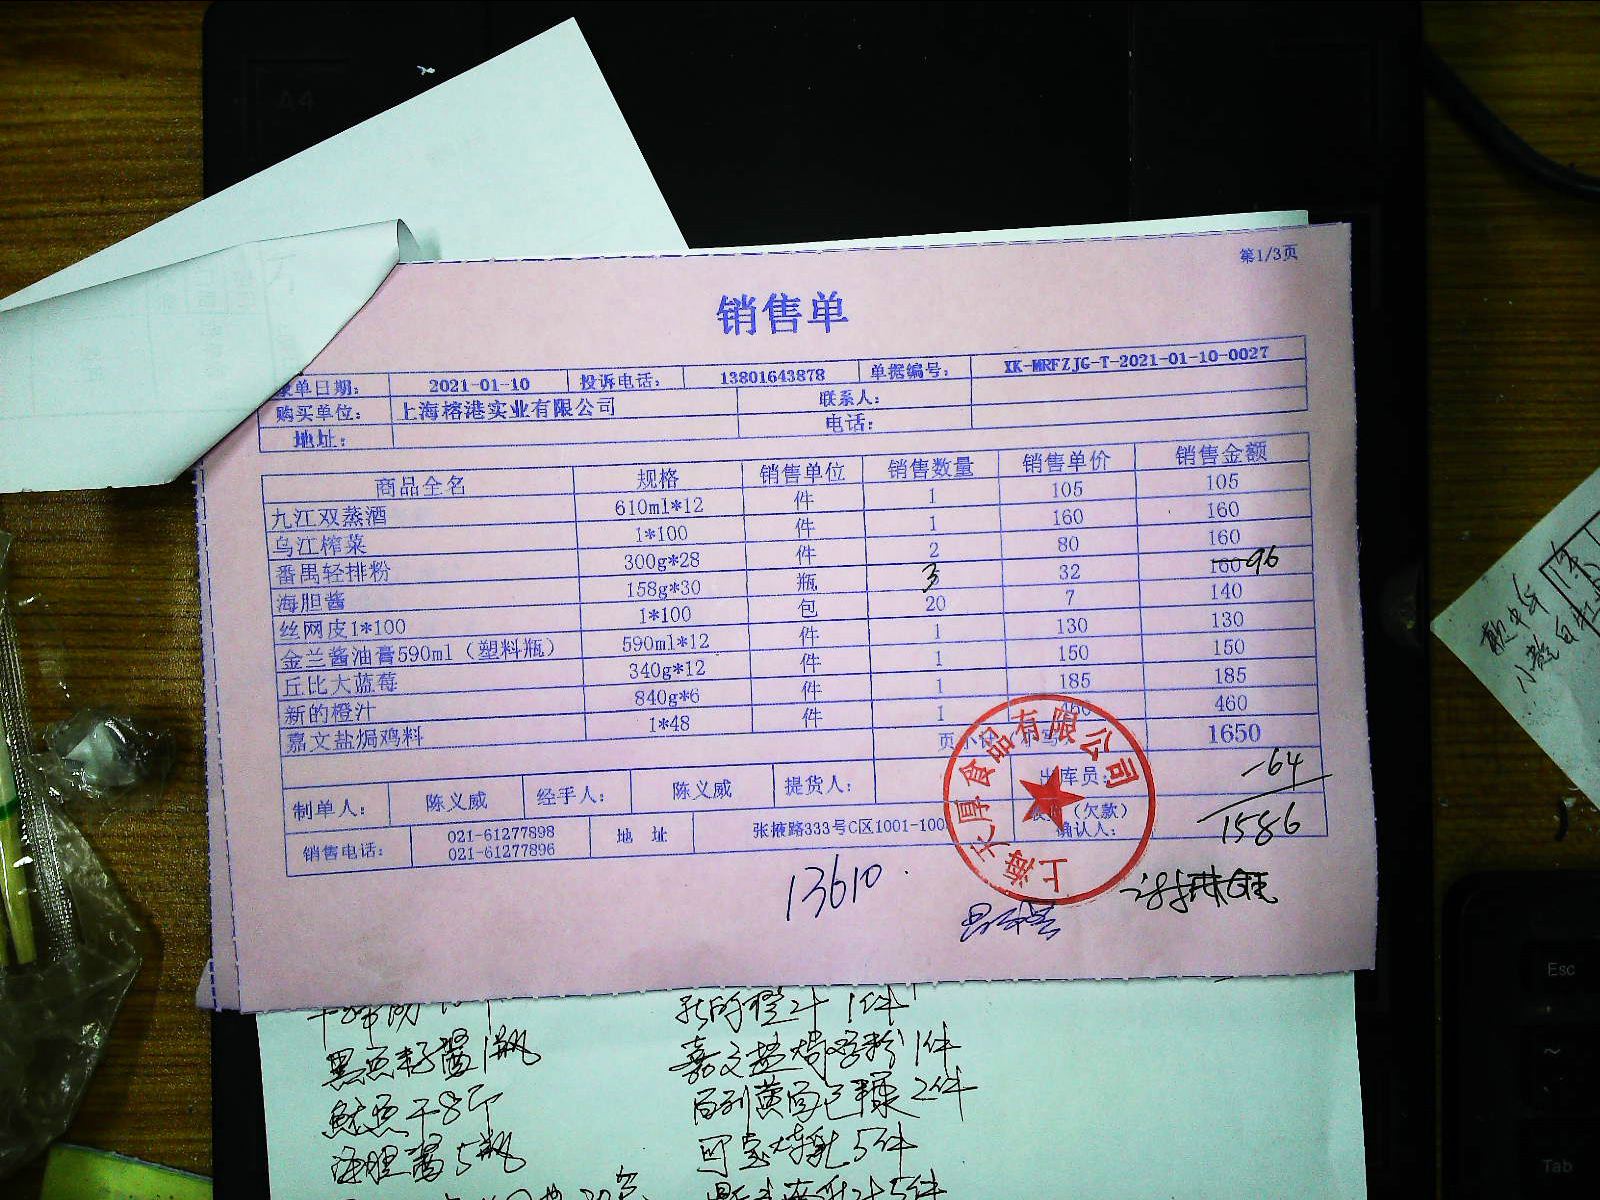 第1/3页
销售单
录单日期： 2021-01-10 投诉电话： 13801643878 单据编号： XK-MRFZJG-T-2021-01-10-0027
购买单位： 上海榕港实业有限公司 联系人：
地址： 电话：
商品全名 规格 销售单位 销售数量 销售单价 销售金额
九江双蒸酒 610ml*12 件 1 105 105
乌江榨菜 1*100 件 1 160 160
番禺轻排粉 300g*28 件 2 80 160
海胆酱 158g*30 瓶 3 32 160 96
丝网皮1*100 1*100 包 20 7 140
金兰酱油膏590ml（塑料瓶） 590ml*12 件 1 130 130
丘比大蓝莓 340g*12 件 1 150 150
新的橙汁 840g*6 件 1 185 185
嘉文盐焗鸡料 1*48 件 1 460 460
页小计 1650
-64
1586
制单人： 陈义威 经手人： 陈义威 提货人： 出库员：
销售电话： 021-61277898 021-61277896 地 址 张掖路333号C区1001-100 （欠款）确认人：
上海天厚食品有限公司
13610
新的橙汁 1件
黑鱼籽酱1瓶 嘉文盐焗鸡粉1件
鱿鱼干8斤 2件
海胆酱5瓶 5件
5件
A4
Esc
~
Tab